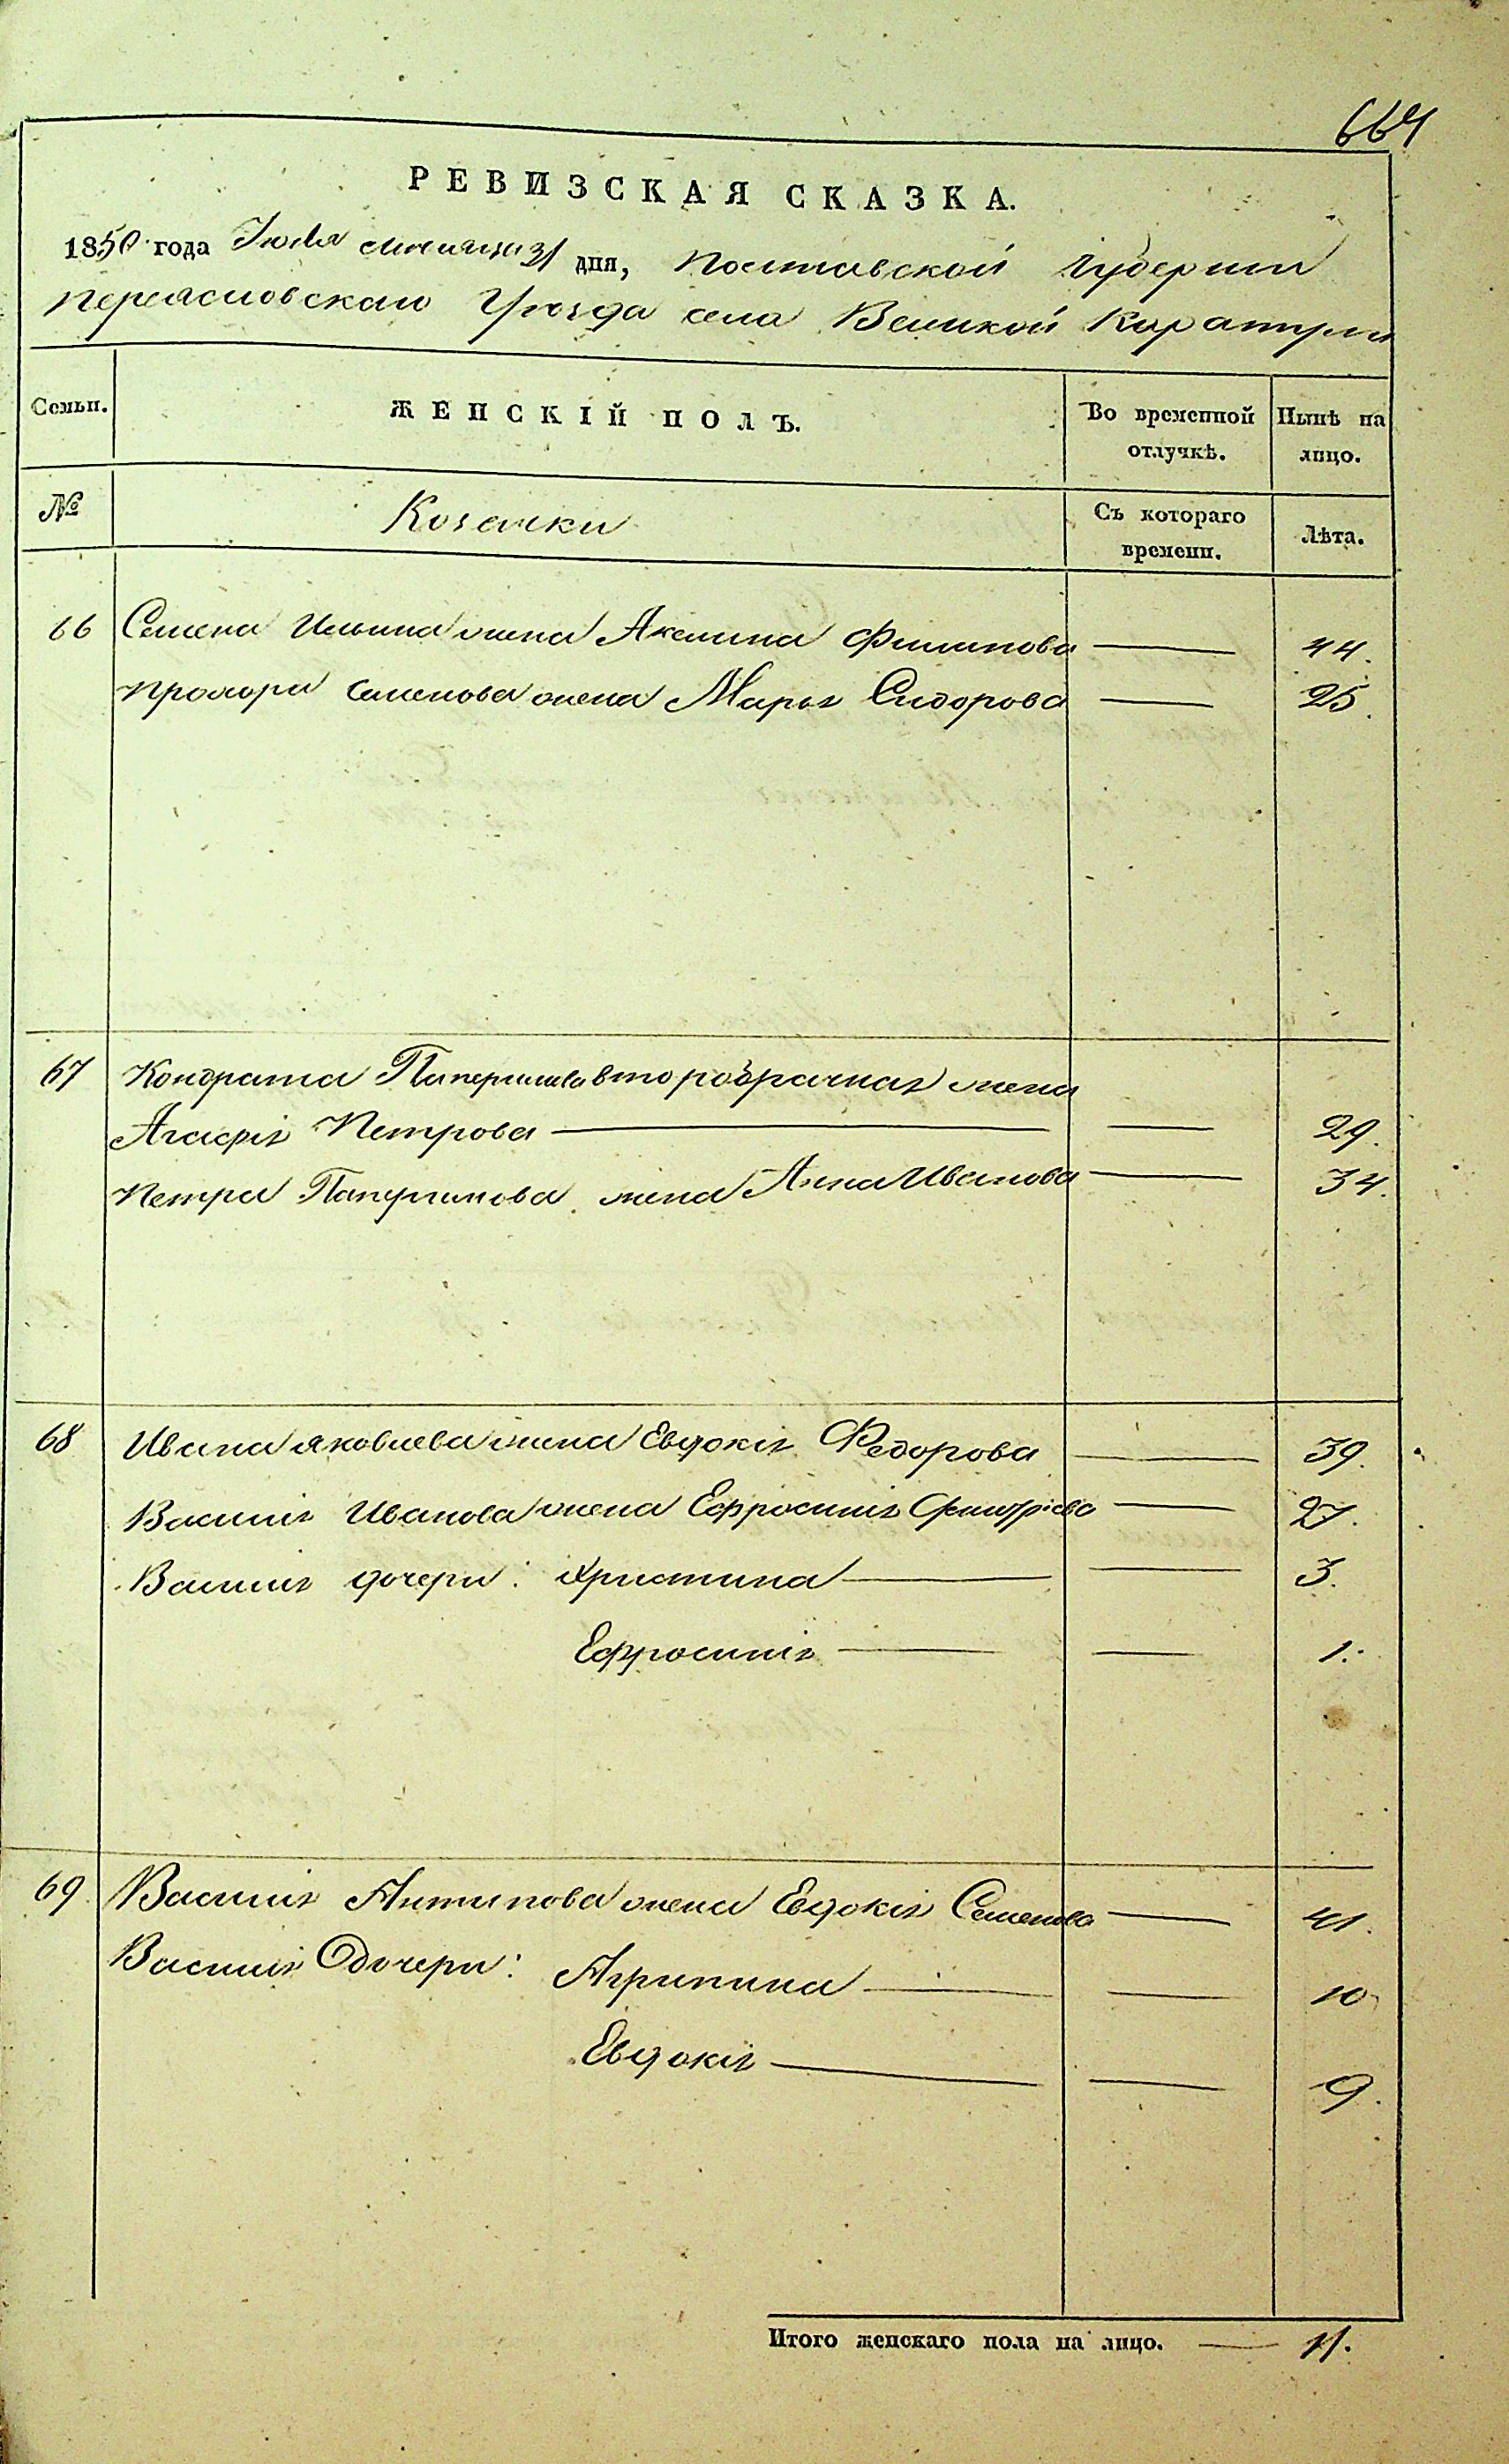 664
РЕВИЗСКАЯ СКАЗКА.
1850 года Июля месяца 31 дня, Полтавской Губернии
Переясловскаго Уезда села Великой Каратули
Семьи. ЖЕНСКІЙ ПОЛЪ. Во временной отлучкѣ. Нынѣ на лицо.
№ Козачки Съ котораго времени. Лѣта.
66 Семена Ильина жена Акилина Филипова 44.
Прохора Семенова жена Марья Сидорова 25.
67 Кондрата второбрачная жена
Агафія Петрова 29.
Петра жена Анна Иванова 34.
68 Ивана Яковлева жена Евдокія Федорова 39.
Василія Иванова жена Ефросинія 27.
Василія дочери: Христина 3.
Ефросинія 1.
69 Василія Антипова жена Евдокія Семенова 41.
Василія дочери: Агрипина 10
Евдокія 9.
Итого женскаго пола на лицо. 11.